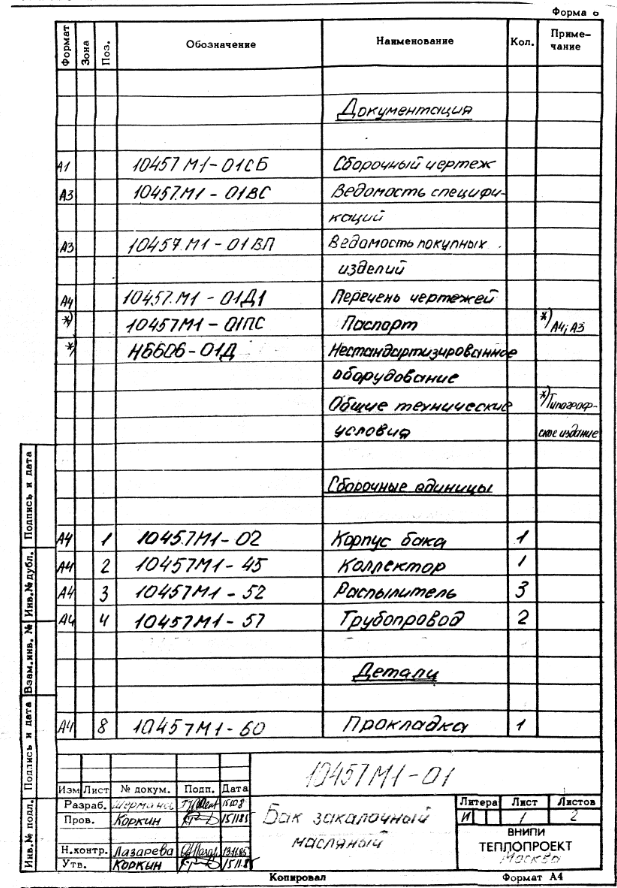 Форма 6
Формат Зона Поз. Обозначение Наименование Кол. Приме-
чание
Документация
А1 10457М1-01СБ Сборочный чертеж
А3 10457.М1-01ВС Ведомость специфи-
каций
А3 10457.М1-01ВП Ведомость покупных
изделий
А4 10457.М1-01Д1 Перечень чертежей
*) 10457М1-01ПС Паспорт *) А4; А3
*) Н6606-01Д Нестандартизированное
оборудование
Общие технические *) Типограф-
условия ское издание
Сборочные единицы
А4 1 10457М1-02 Корпус бака 1
А4 2 10457М1-45 Коллектор 1
А4 3 10457М1-52 Распылитель 3
А4 4 10457М1-57 Трубопровод 2
Детали
А4 8 10457М1-60 Прокладка 1
Подпись и дата
Инв.№ дубл.
Взам.инв. №
Подпись и дата
Инв.№ подл.
10457М1-01
Изм Лист № докум. Подп. Дата
Разраб.
Пров. Коркин
Н.контр. Лазарева
Утв. Коркин
Бак закалочный
масляный
Литера Лист Листов
И 1 2
ВНИПИ
ТЕПЛОПРОЕКТ
Москва
Копировал Формат А4